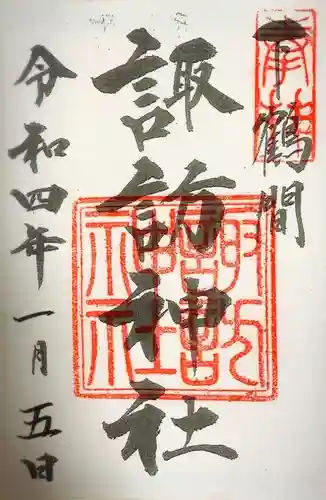 下鶴間
奉拝
諏訪神社
諏訪神社
令和四年一月五日